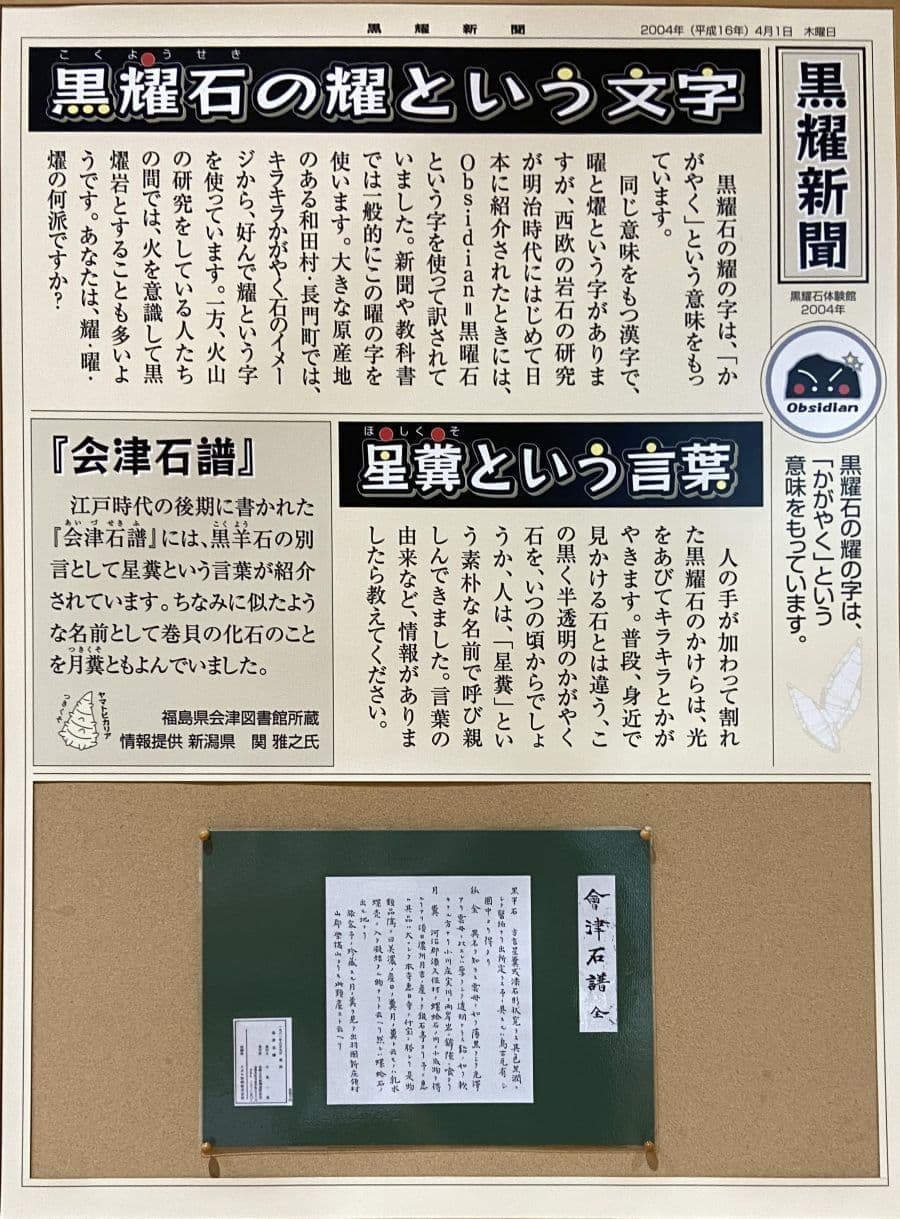 黒耀新聞
2004年（平成16年）4月1日　木曜日
黒耀新聞
黒耀石体験館
2004年
Obsidian
黒耀石の耀の字は、
「かがやく」という
意味をもっています。
こくようせき
黒耀石の耀という文字
黒耀石の耀の字は、「か
がやく」という意味をもっ
ています。
同じ意味をもつ漢字で、
曜と燿という字がありま
すが、西欧の岩石の研究
が明治時代にはじめて日
本に紹介されたときには、
Obsidian＝黒曜石
という字を使って訳されて
いました。新聞や教科書
では一般的にこの曜の字を
使います。大きな原産地
のある和田村・長門町では、
キラキラかがやく石のイメー
ジから、好んで耀という字
を使っています。一方、火山
の研究をしている人たち
の間では、火を意識して黒
燿岩とすることも多いよ
うです。あなたは、耀・曜・
燿の何派ですか？
ほしくそ
星糞という言葉
人の手が加わって割れ
た黒耀石のかけらは、光
をあびてキラキラとかが
やきます。普段、身近で
見かける石とは違う、こ
の黒く半透明のかがやく
石を、いつの頃からでしょ
うか、人は、「星糞」とい
う素朴な名前で呼び親
しんできました。言葉の
由来など、情報がありま
したら教えてください。
『会津石譜』
江戸時代の後期に書かれた
あいづせきふ　こくよう
『会津石譜』には、黒羊石の別
言として星糞という言葉が紹介
されています。ちなみに似たよう
な名前として巻貝の化石のこと
つきくそ
を月糞ともよんでいました。
ヤマトビカリア
つきくそ
福島県会津図書館所蔵
情報提供 新潟県　関 雅之氏
會津石譜 全